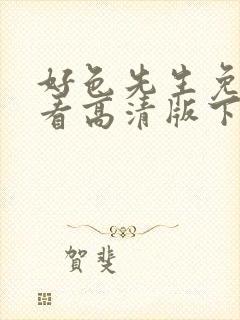 好色先生免
看高清版下
賀斐